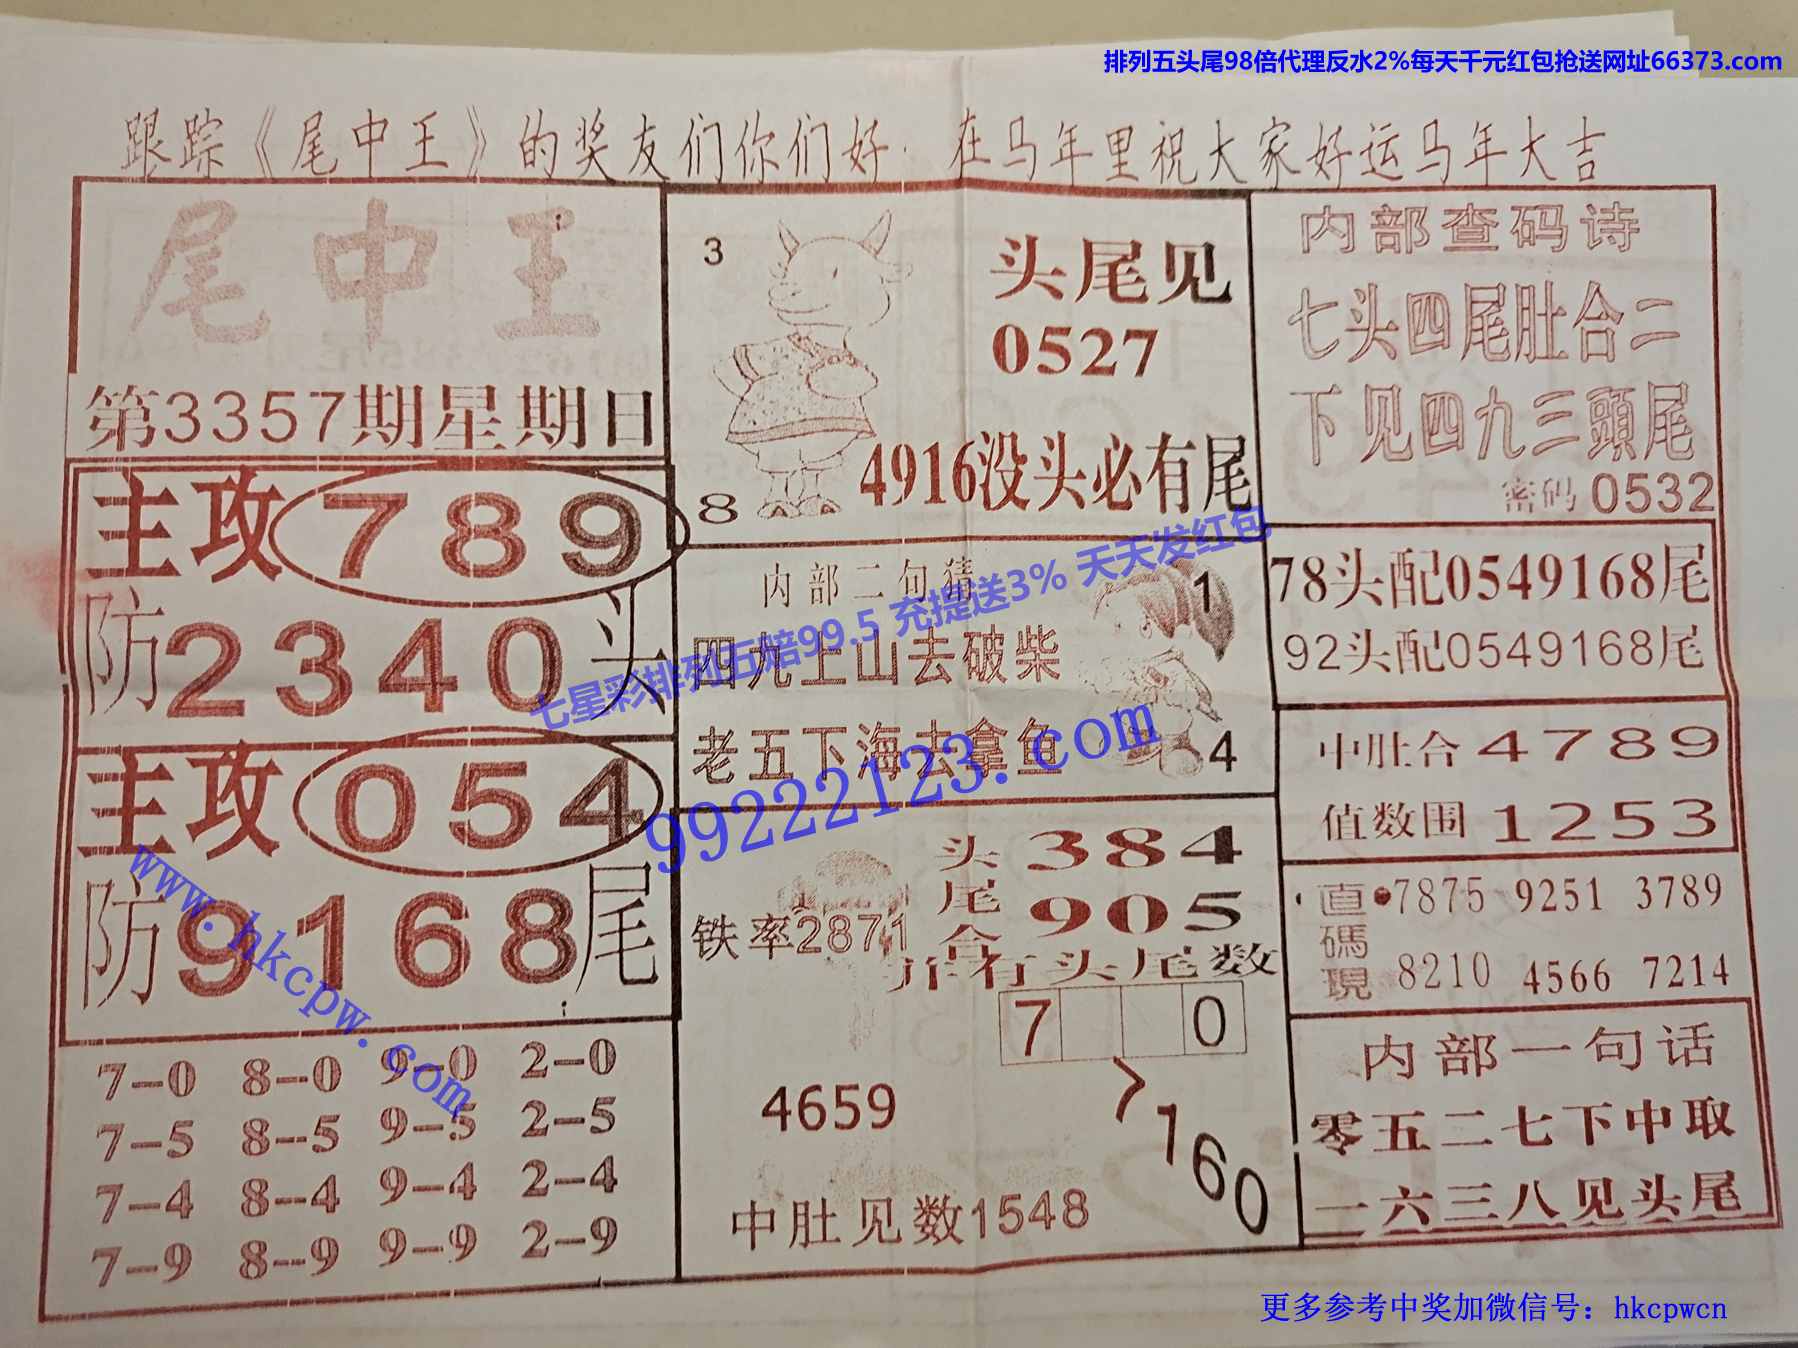 排列五头尾98倍代理反水2%每天千元红包抢送网址66373.com
跟踪《尾中王》的奖友们你们好.在马年里祝大家好运马年大吉
尾中王
第3357期星期日
主攻789
防2340头
主攻054
防9168尾
7–0 8–0 9–0 2–0
7–5 8–5 9–5 2–5
7–4 8–4 9–4 2–4
7–9 8–9 9–9 2–9
3
头尾见
0527
4916没头必有尾
8
内部二句猜
1
四九上山去破柴
老五下海去拿鱼
4
头384
尾905
合
铁率2871
并有头尾数
7 0
7160
4659
中肚见数1548
内部查码诗
七头四尾肚合二
下见四九三頭尾
密码0532
78头配0549168尾
92头配0549168尾
中肚合4789
值数围1253
直碼現
7875 9251 3789
8210 4566 7214
内部一句话
零五二七下中取
一六三八见头尾
七星彩排列五赔99.5 充提送3% 天天发红包
99222123.com
www.hkcpw.com
更多参考中奖加微信号：hkcpwcn